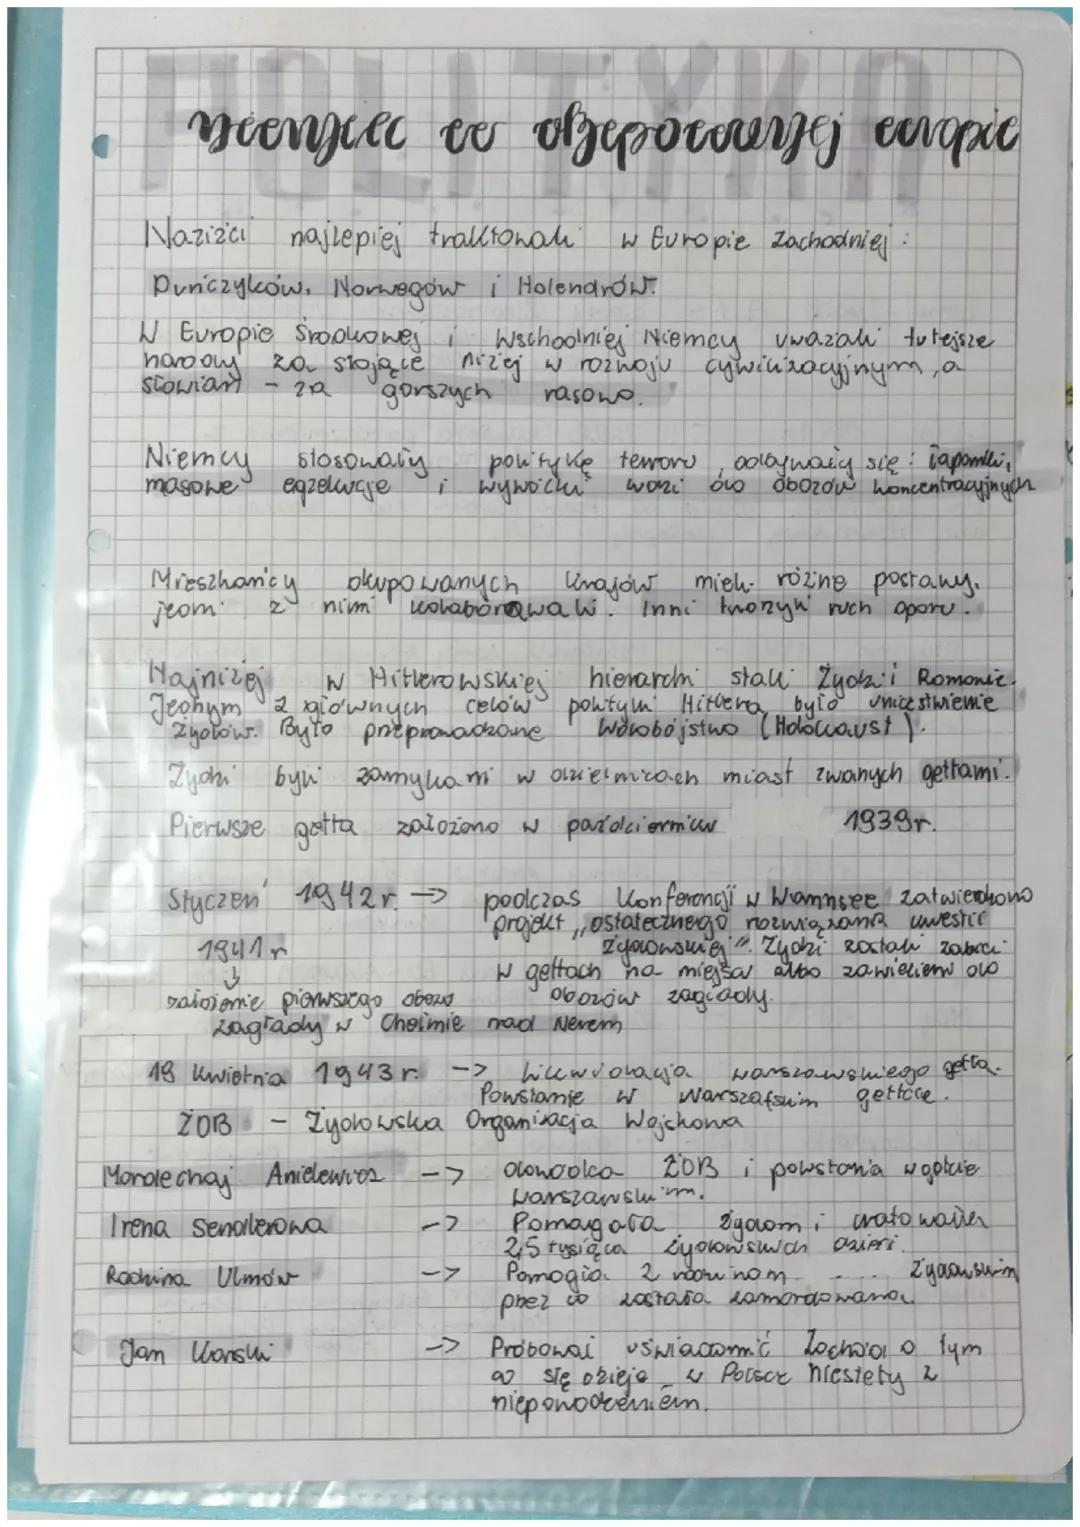 POLITYKA
niemiec w okupowanej europie
Naziści najlepiej traktowali w Europie Zachodniej:
Duńczyków, Norwegów i Holendrów.
W Europie Środkowej i Wschodniej Niemcy uważali tutejsze
narody za stojące niżej w rozwoju cywilizacyjnym, a
słowian - za gorszych rasowo.
Niemcy stosowały politykę terroru, odbywały się: łapanki,
masowe egzekucje i wywózki ludzi do obozów koncentracyjnych
Mieszkańcy okupowanych krajów mieli różne postawy,
jedni z nimi kolaborowali. Inni tworzyli ruch oporu.
Najniżej w Hitlerowskiej hierarchi stali Żydzi i Romowie.
Jednym z głównych celów polityki Hitlera było unicestwienie
Żydów. Było przeprowadzane ludobójstwo (Holokaust).
Żydzi byli zamykani w dzielnicach miast zwanych gettami.
Pierwsze getta założono w październiku 1939r.
Styczeń 1942r. -> podczas Konferencji w Wannsee zatwierdzono
projekt „ostatecznego rozwiązania kwestii
1941r
żydowskiej". Żydzi zostali zabici
w gettach na miejscu albo zawiezieni do
założenie pierwszego obozu
obozów zagłady.
zagłady w Chełmie nad Nerem
19 kwietnia 1943r. -> Likwidacja warszawskiego getta.
Powstanie w Warszafskim gettcie.
ŻOB - Żydowska Organizacja Wojskowa
Mordechaj Anielewicz -> dowódca ŻOB i powstania w getcie
warszawskim.
Irena Sendlerowa -> Pomagała żydom i uratowała
2,5 tysiąca żydowskich dzieci.
Rodzina Ulmów -> Pomogła 2 rodzinom żydowskim
przez co została zamordowana.
Jan Karski -> Próbował uświadomić Zachód o tym
co się dzieje w Polsce niestety z
niepowodzeniem.